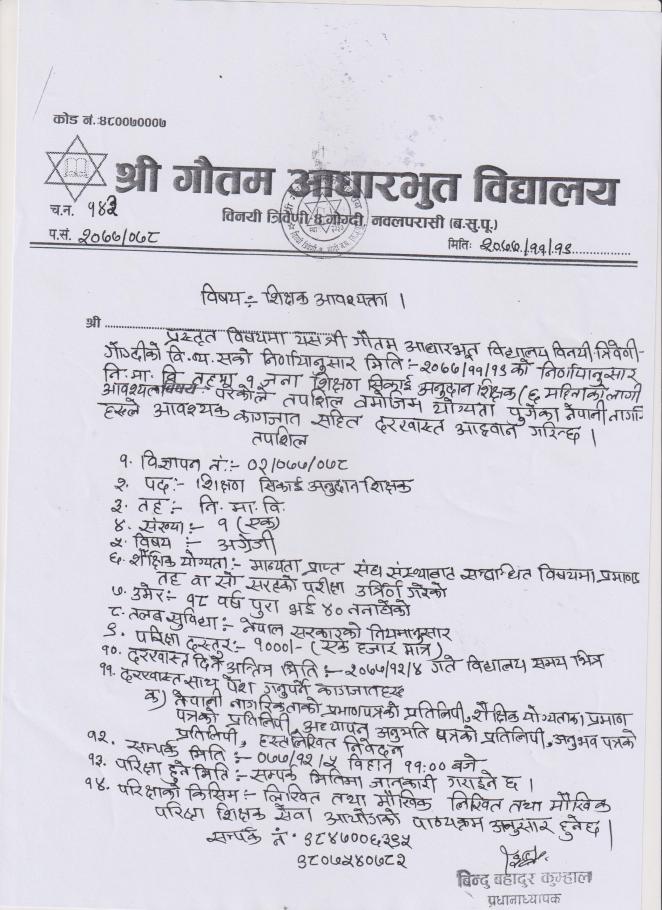 कोड नं.:४८००७०००७
श्री गौतम आधारभुत विद्यालय
च.न. १४२
विनयी त्रिवेणी ४ गोग्दी, नवलपरासी (ब.सु.पू.)
प.सं. २०७७/०७८
मितिः २०७७/११/१९
विषय :- शिक्षक आवश्यक्ता ।
श्री
प्रस्तुत विषयमा यस श्री गौतम आधारभूत विद्यालय विनयी त्रिवेणी-
गोग्दीको वि.व्य.सको निर्णयानुसार मिति:- २०७७/११/१९ को निर्णयानुसार
नि. मा. वि तहमा १ जना शिक्षण सिकाई अनुदान शिक्षक (६ महिनाको लागी
आवश्यक्ता परेकोले तपशिल वमोजिम योग्यता पुगेका नेपाली नागरि-
हरुले आवश्यक कागजात सहित दरखास्त आह्वान गरिन्छ ।
तपशिल
१. विज्ञापन नं:- ०२/०७७/०७८
२. पद:- शिक्षण सिकाई अनुदान शिक्षक
३. तह :- नि. मा. वि.
४. संख्या :- १ (एक)
५. विषय :- अंग्रेजी
६. शैक्षिक योग्यता:- मान्यता प्राप्त संघ संस्थाबाट सम्बन्धित विषयमा प्रमाणपत्र
तह वा सो सरहको परीक्षा उत्रिर्ण गरेको
७. उमेर:- १८ वर्ष पुरा भई ४० ननाघेको
८. तलब सुविधा :- नेपाल सरकारको नियमानुसार
९. परिक्षा दस्तुर:- १०००/- (एक हजार मात्र)
१०. दरखास्त दिने अन्तिम मिति :- २०७७/१२/४ गते विद्यालय समय भित्र
११. दरखास्त साथ पेश गर्नुपर्ने कागजातहरु
क) नेपाली नागरिकताको प्रमाणपत्रको प्रतिलिपी, शैक्षिक योग्यताका प्रमाण
पत्रको प्रतिलिपी, अध्यापन अनुमति पत्रको प्रतिलिपी, अनुभव पत्रको
प्रतिलिपी, हस्तलिखित निवेदन
१२. सम्पर्क मिति :- ०७७/१२/५ विहान ११:०० बजे
१३. परिक्षा हुने मिति :- सम्पर्क मितिमा जानकारी गराईने छ ।
१४. परिक्षाको किसिम :- लिखित तथा मौखिक लिखित तथा मौखिक
परिक्षा शिक्षक सेवा आयोगको पाठ्यक्रम अनुसार हुनेछ ।
सम्पर्क नं. ९८४७००६३९५
९८०७५४०७८२
बिन्दु बहादुर कुम्हाल
प्रधानाध्यापक